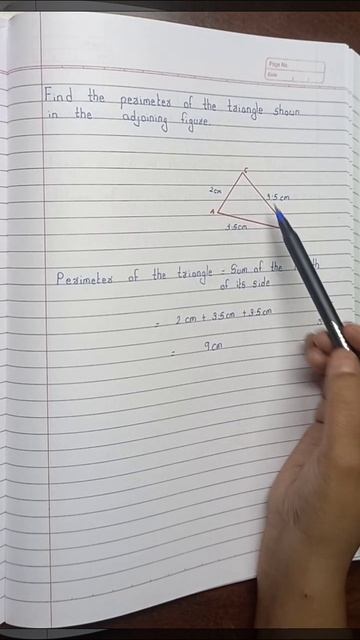 Page No.
Date
Find the perimeter of the triangle shown
in the adjoining figure.
C
2cm
3.5 cm
A
3.5cm
Perimeter of the triangle = Sum of the
of its side
= 2 cm + 3.5cm + 3.5cm
= 9cm